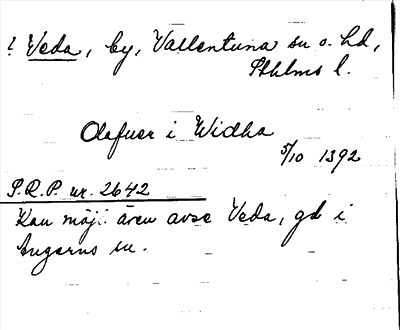 ? Veda, by, Vallentuna sn o. hd,
Sthlms l.
Olafuer i Widha
5/10 1392
S.R.P. nr. 2642
Kan möjl. även avse Veda, gd i
Angarns sn.